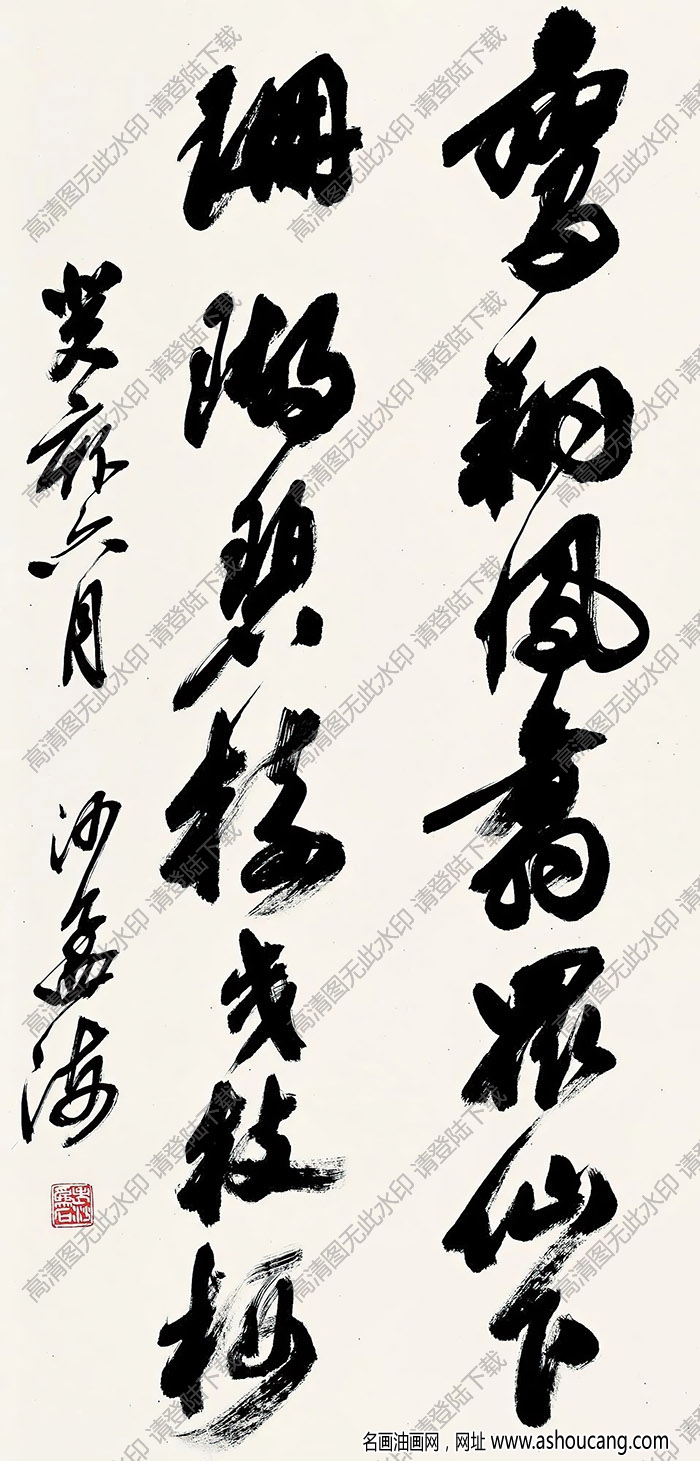 鸞翔鳳翥眾仙下
珊瑚碧樹交枝柯
癸亥六月 沙孟海
高清图无此水印 请登陆下载
名画油画网，网址 www.ashoucang.com